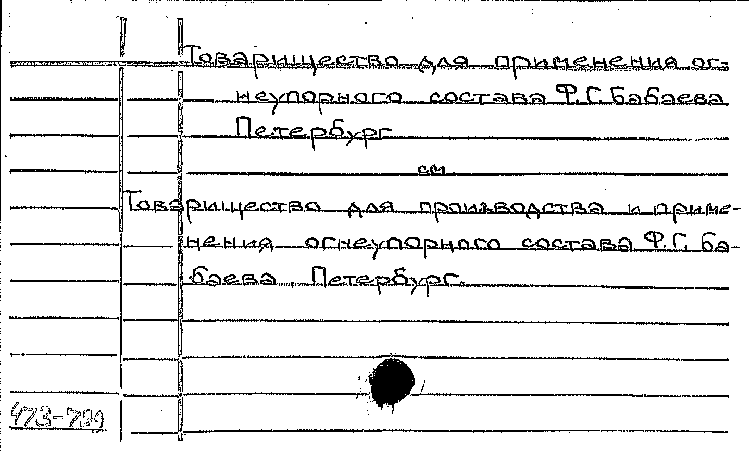 Товарищество для применения ог-
неупорного состава Ф.Г. Бабаева
Петербург
см
Товарищество для производства и приме-
нения огнеупорного состава Ф.Г. Ба-
баева. Петербург.